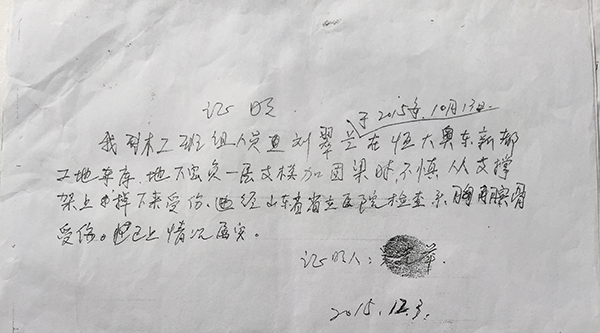 证明
于2015年10月13日
我到木工班组人员 刘翠兰在恒大奥东新都
工地车库地下室负一层支模加固梁时不慎从支撑
架上 掉下来受伤。 经山东省省立医院检查示胸 骨
受伤。 以上情况属实。
证明人：
2015.12.3.